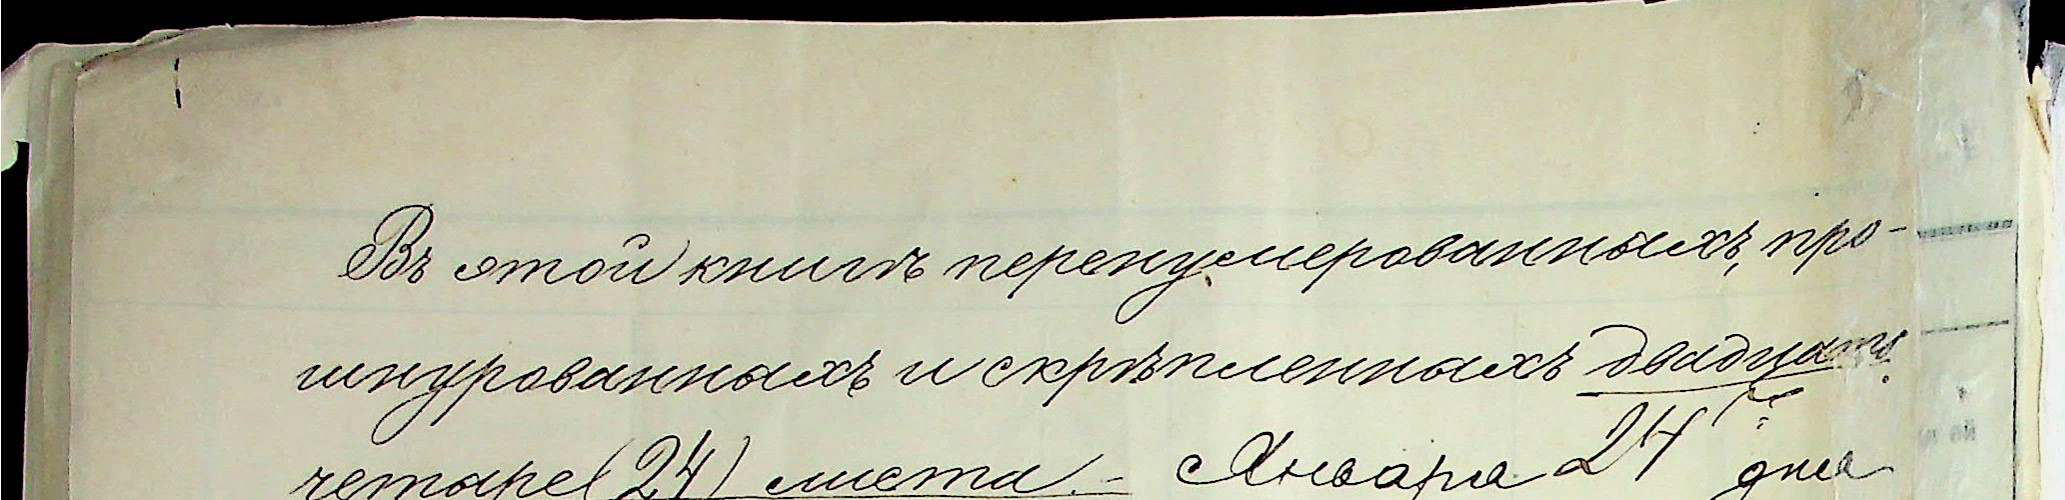 Въ этой книгѣ перенумерованныхъ, про-
шнурованныхъ и скрѣпленныхъ двадцать
четыре (24) листа. – Января 24 дня